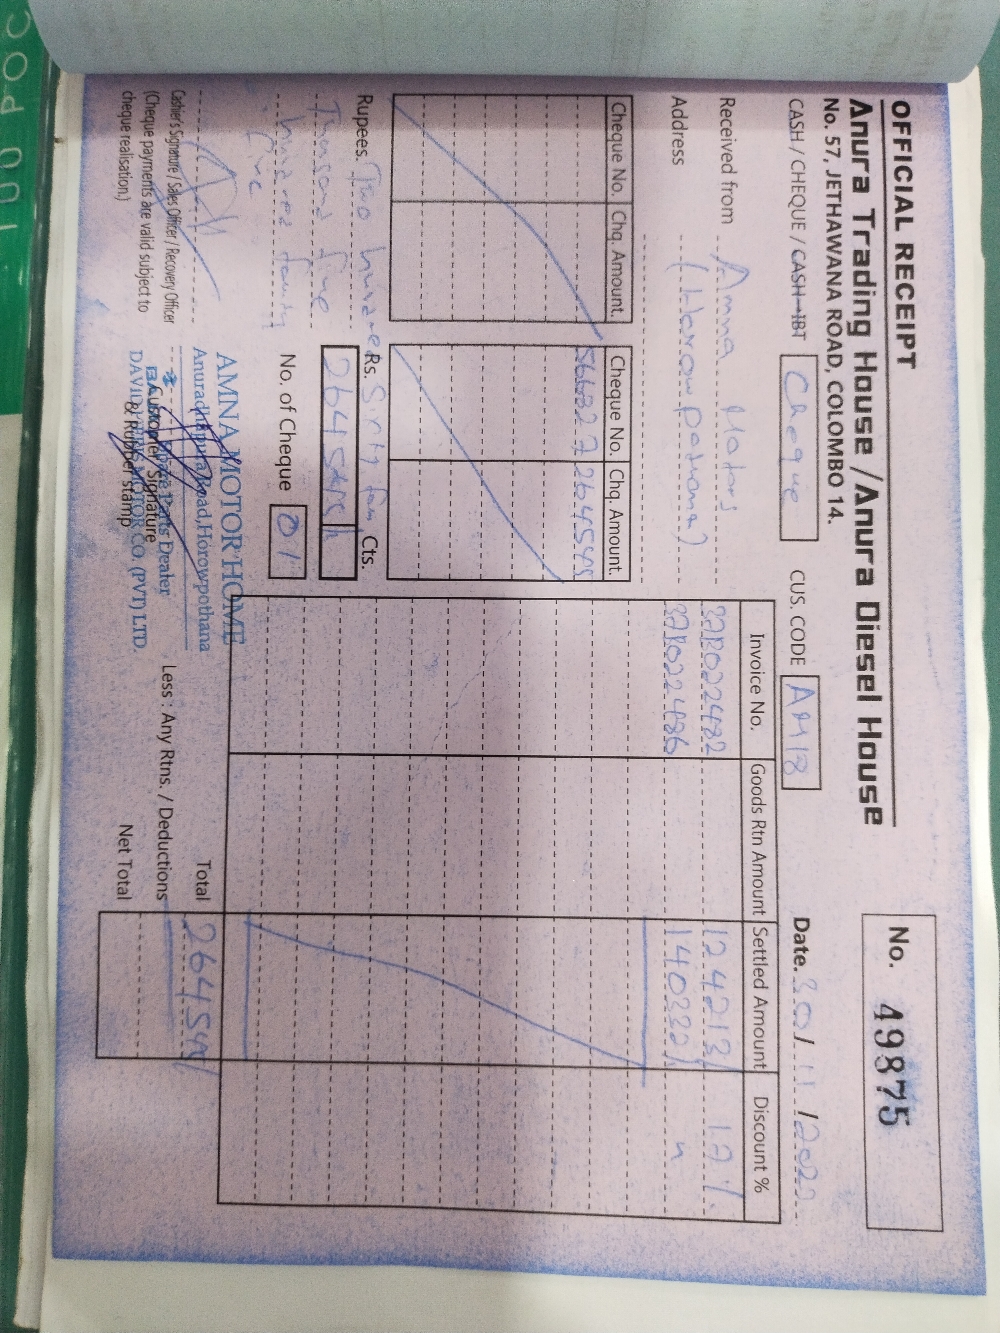 OFFICIAL RECEIPT
Anura Trading House / Anura Diesel House
No. 57, JETHAWANA ROAD, COLOMBO 14.
No. 49875
CASH / CHEQUE / CASH-IBT Cheque
CUS. CODE AM18
Date. 30 / 11 /
Received from Amna Motors
Address (Horowpothana)
Cheque No. Chq. Amount. Cheque No. Chq. Amount.
Invoice No. Goods Rtn Amount Settled Amount Discount %
124213/ 17%
140332/ "
Rupees. Two hundred Sixty four
Thousand five
hundred fourty
five
Rs. Cts.
264545/
No. of Cheque 01
Total 264545/
Less : Any Rtns. / Deductions
Net Total
Cashier's Signature / Sales Officer / Recovery Officer
(Cheque payments are valid subject to
cheque realisation.)
AMNA MOTOR HOME
Anuradhapura Road, Horowpothana
Dealer
DAVID MOTOR CO. (PVT) LTD.
Customer Signature
& Rubber stamp
100 POC